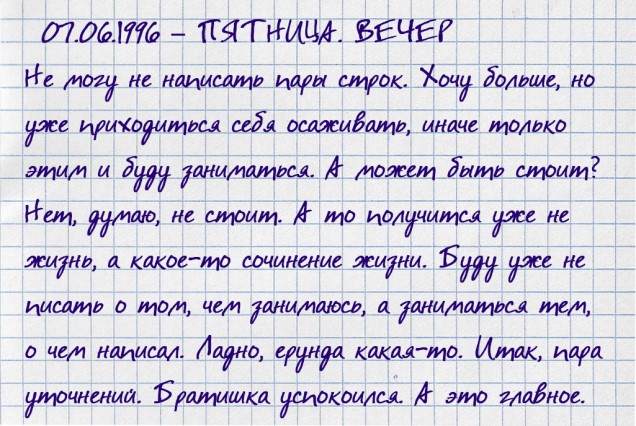 07.06.1996 – ПЯТНИЦА. ВЕЧЕР
Не могу не написать пары строк. Хочу больше, но
уже приходиться себя осаживать, иначе только
этим и буду заниматься. А может быть стоит?
Нет, думаю, не стоит. А то получится уже не
жизнь, а какое-то сочинение жизни. Буду уже не
писать о том, чем занимаюсь, а заниматься тем,
о чем написал. Ладно, ерунда какая-то. Итак, пара
уточнений. Братишка успокоился. А это главное.